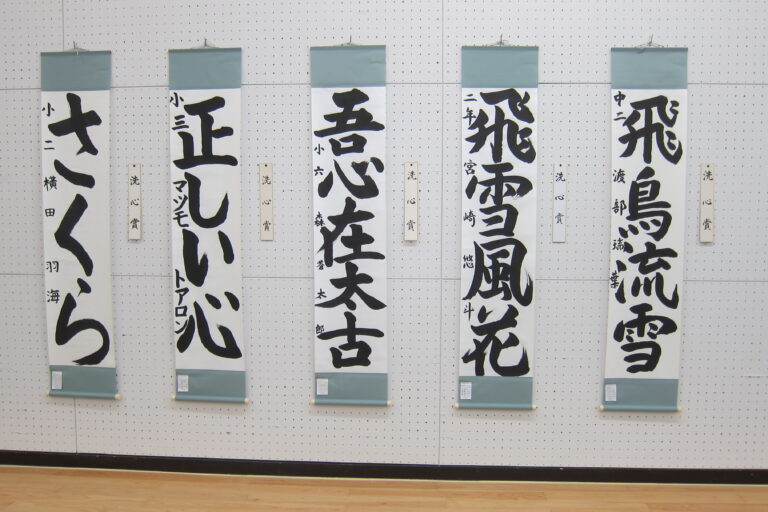 さくら
小二 横田羽海
洗心賞
正しい心
小三 マツモトアロン
洗心賞
吾心在太古
小六 森 太郎
洗心賞
飛雪風花
二年 宮崎悠斗
洗心賞
飛鳥流雪
中二 渡部瑞葉
洗心賞